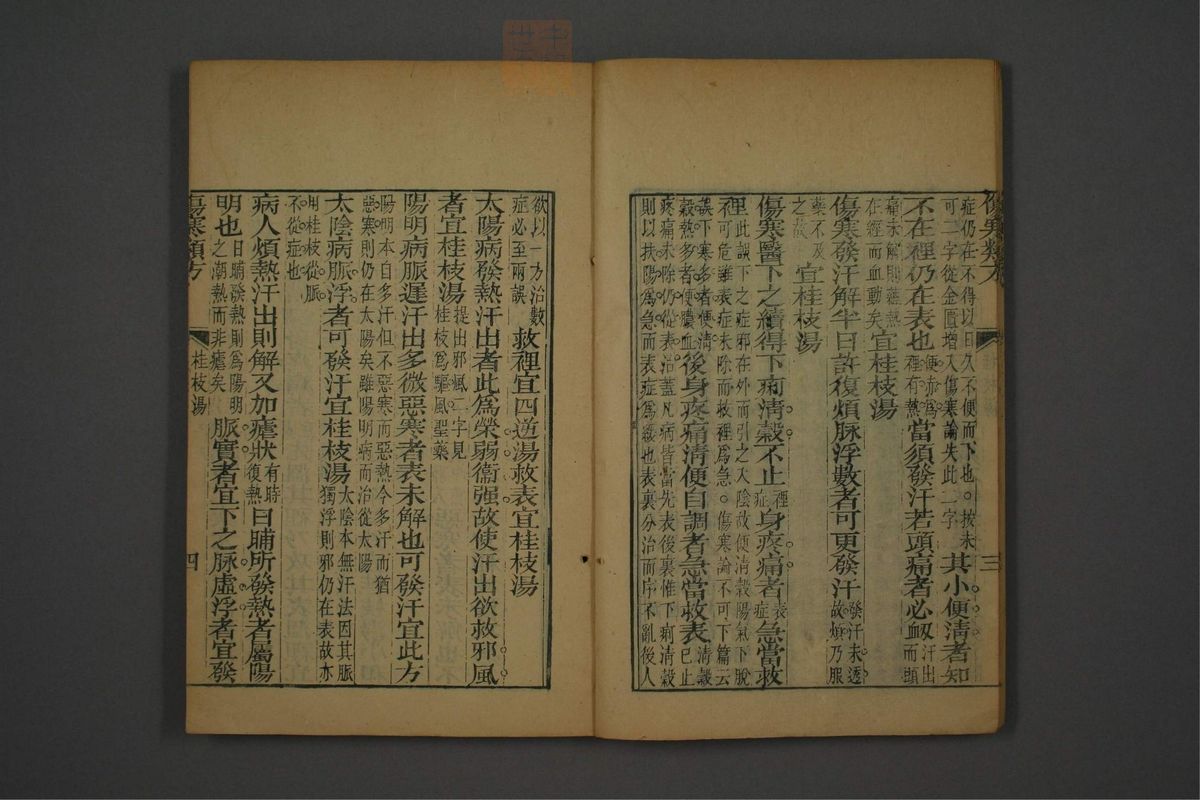 傷寒類方 三
症仍在不得以日久不便而下也。按未
可二字從金匱增入傷寒論失此二字
其小便清者知
不在裡仍在表也
便赤爲
裡有熱
當須發汗若頭痛者必衂
汗出
而頭
痛未解則蘊熱
在經而血動矣
宜桂枝湯
傷寒發汗解半日許復煩脉浮數者可更發汗
發汗未透
故煩乃服
藥不及
之故
宜桂枝湯
傷寒醫下之續得下痢清穀不止
裡
症
身疼痛者
表
症
急當救
裡
此誤下之症邪在外而引之入陰故便清穀陽氣下脫
可危雖表症未除而救裡爲急。傷寒論不可下篇云
誤下寒多者便清
穀熱多者便膿血
後身疼痛清便自調者急當救表
清穀
已止
疼痛未除仍從表治蓋凡病皆當先表後裏惟下痢清穀
則以扶陽爲急而表症爲緩也表裏分治而序不亂後人
欲以一方治數
症必至兩誤
救裡宜四逆湯救表宜桂枝湯
太陽病發熱汗出者此爲榮弱衞强故使汗出欲救邪風
者宜桂枝湯
提出邪風二字見
桂枝爲驅風聖藥
陽明病脈遲汗出多微惡寒者表未解也可發汗宜此方
陽明本自多汗但不惡寒而惡熱今多汗而猶
惡寒則仍在太陽矣雖陽明病而治從太陽
太陰病脈浮者可發汗宜桂枝湯
太陰本無汗法因其脈
獨浮則邪仍在表故亦
用桂枝從脈
不從症也
病人煩熱汗出則解又加瘧狀
有時
復熱
日晡所發熱者屬陽
明也
日晡發熱則爲陽明
之潮熱而非瘧矣
脈實者宜下之脉虛浮者宜發
傷寒類方 桂枝湯 四